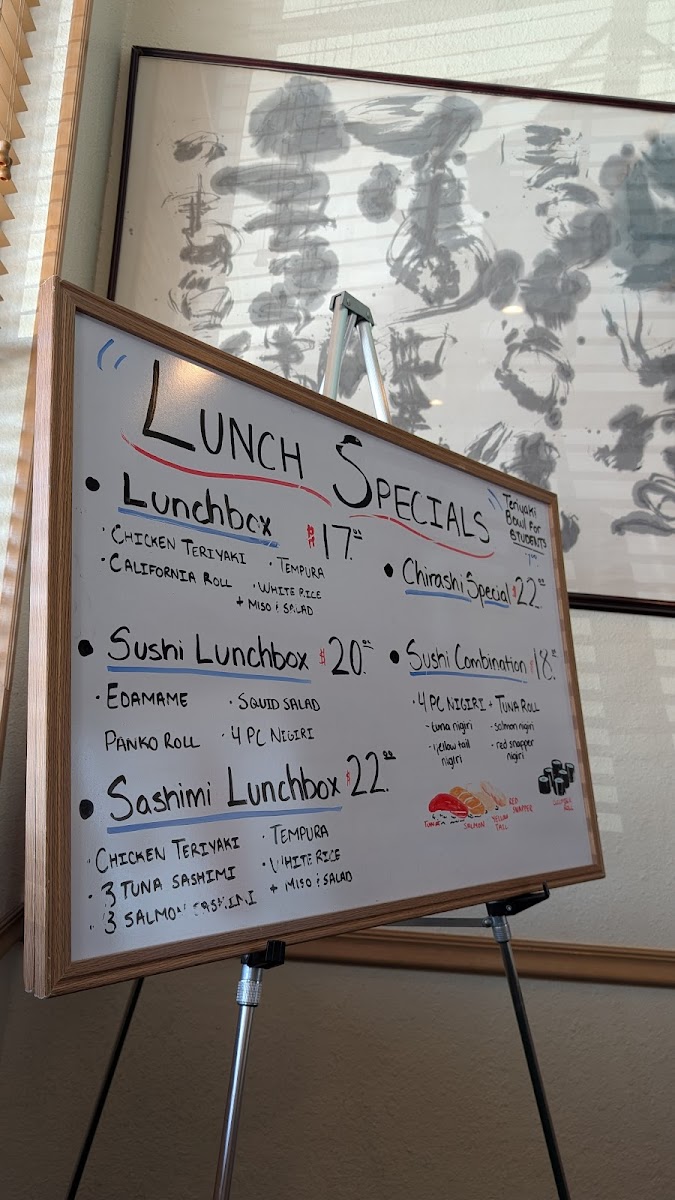 LUNCH SPECIALS
• Lunchbox $17.00
· CHICKEN TERIYAKI · TEMPURA
· CALIFORNIA ROLL · WHITE RICE
+ MISO & SALAD
• Sushi Lunchbox $20.00
· EDAMAME · SQUID SALAD
PANKO ROLL · 4 PC NIGIRI
• Sashimi Lunchbox $22.00
· CHICKEN TERIYAKI · TEMPURA
· 3 TUNA SASHIMI · WHITE RICE
· 3 SALMON SASHIMI + MISO & SALAD
Teriyaki
Bowl for
STUDENTS
• Chirashi Special $22.00
• Sushi Combination $18.00
· 4 PC NIGIRI + TUNA ROLL
- tuna nigiri - salmon nigiri
- yellow tail - red snapper
nigiri nigiri
SALMON
YELLOW
TAIL
RED
SNAPPER
ROLL